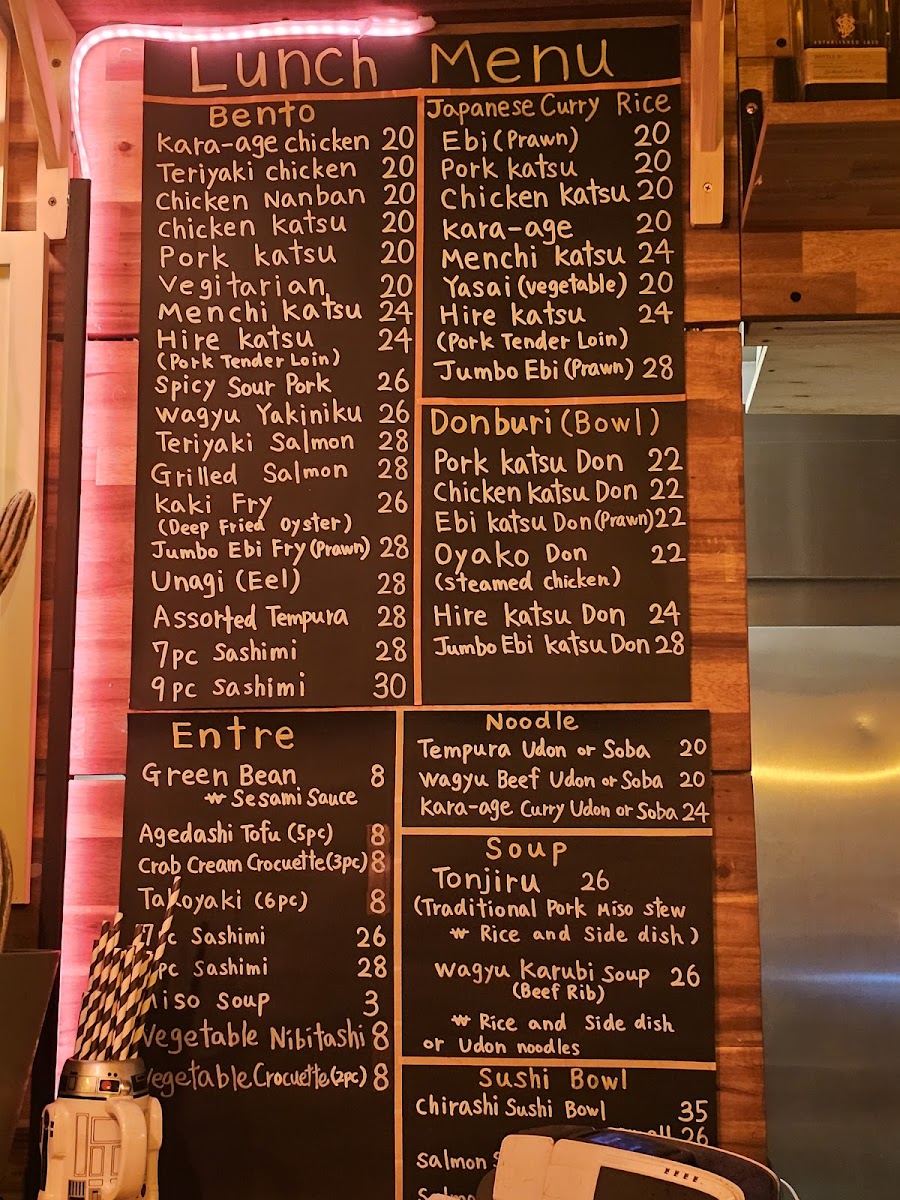 Lunch Menu
Bento
Kara-age chicken 20
Teriyaki chicken 20
Chicken Nanban 20
Chicken Katsu 20
Pork Katsu 20
Vegitarian 20
Menchi Katsu 24
Hire Katsu 24
(Pork Tender Loin)
Spicy Sour Pork 26
Wagyu Yakiniku 26
Teriyaki Salmon 28
Grilled Salmon 28
Kaki Fry 26
(Deep Fried Oyster)
Jumbo Ebi Fry (Prawn) 28
Unagi (Eel) 28
Assorted Tempura 28
7pc Sashimi 28
9pc Sashimi 30
Japanese Curry Rice
Ebi (Prawn) 20
Pork Katsu 20
Chicken Katsu 20
Kara-age 20
Menchi Katsu 24
Yasai (vegetable) 20
Hire Katsu 24
(Pork Tender Loin)
Jumbo Ebi (Prawn) 28
Donburi (Bowl)
Pork Katsu Don 22
Chicken Katsu Don 22
Ebi Katsu Don (Prawn) 22
Oyako Don 22
(Steamed chicken)
Hire Katsu Don 24
Jumbo Ebi Katsu Don 28
Entre
Green Bean 8
w Sesami Sauce
Agedashi Tofu (5pc) 8
Crab Cream Crocuette (3pc) 8
Takoyaki (6pc) 8
7pc Sashimi 26
pc Sashimi 28
Miso Soup 3
Vegetable Nibitashi 8
Vegetable Crocuette (2pc) 8
Noodle
Tempura Udon or Soba 20
Wagyu Beef Udon or Soba 20
Kara-age Curry Udon or Soba 24
Soup
Tonjiru 26
(Traditional Pork Miso stew
w Rice and Side dish)
Wagyu Karubi Soup 26
(Beef Rib)
w Rice and Side dish
or Udon noodles
Sushi Bowl
Chirashi Sushi Bowl 35
26
Salmon
ESTABLISHED 1820